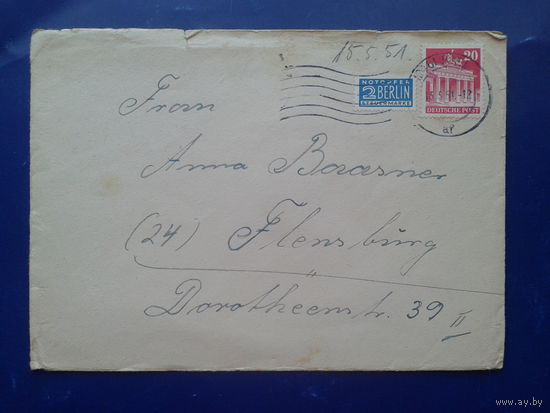 15.5.51.
20
NOTOPFER
2 BERLIN
STEUERMARKE
DEUTSCHE POST
Frau
Anna Baasner
(24) Flensburg
Dorotheenstr. 39 II
www.ay.by